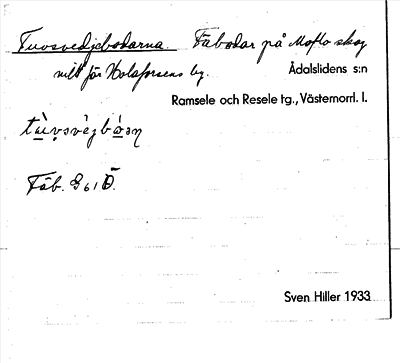 Tuvsvedjebodarna. Fäbodar på Moflo skog
nilt för Holaforsens by. Ådalslidens s:n
Ramsele och Resele tg., Västernorrl. l.
Fäb. G 61 Ö.
Sven Hiller 1933